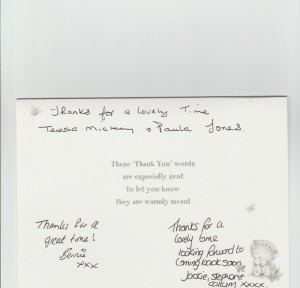 Thanks for a lovely Time
Teresa Mickey & Paula Jones.
These 'Thank You' words
are especially sent
To let you know
they are warmly meant
Thanks for a
great time!
Bernie
xxx
Thanks for a
lovely time
looking forward to
coming back soon
Jackie, stephanie
callum xxxx